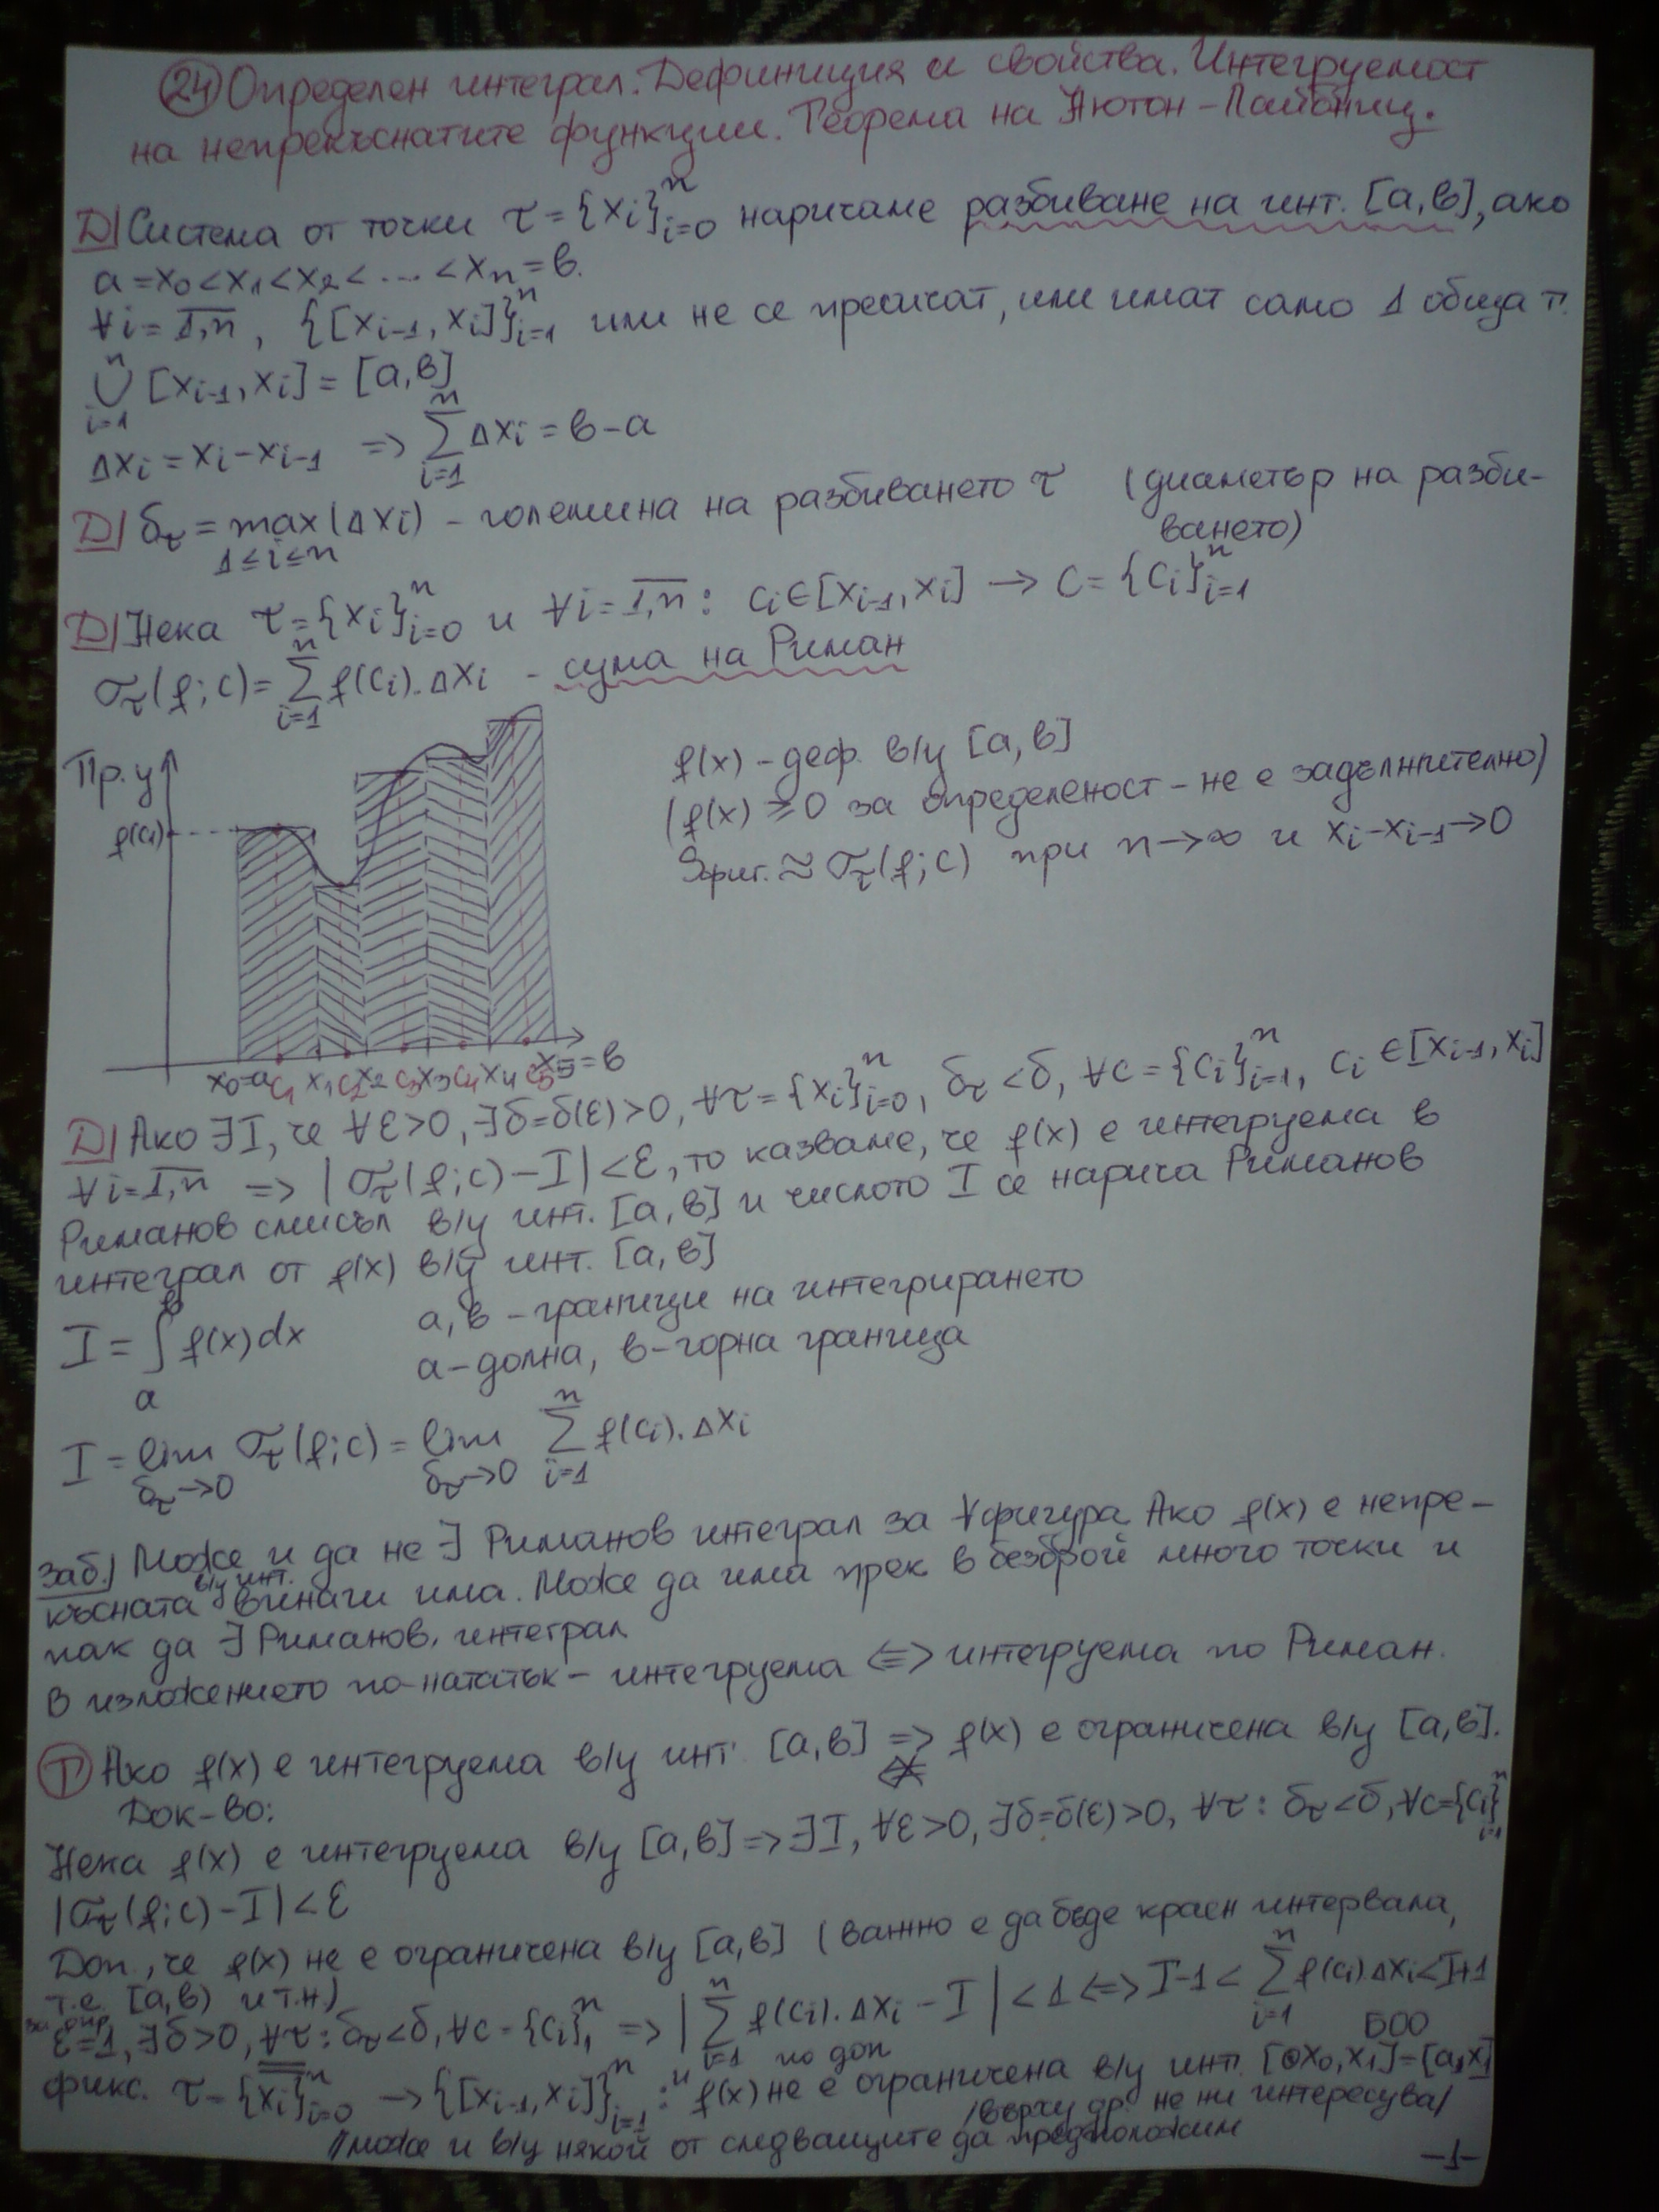 24 Определен интеграл. Дефиниция и свойства. Интегруемост
на непрекъснатите функции. Теорема на Нютон - Лайбниц.
D| Система от точки τ = {xi}ⁿi=0 наричаме разбиване на инт. [a,b], ако
a = x0 < x1 < x2 < ... < xn = b.
∀i = 1,n, {[xi-1, xi]}ⁿi=1 или не се пресичат, или имат само 1 обща т.
ⁿ∪i=1 [xi-1, xi] = [a,b]
Δxi = xi - xi-1 => ⁿ∑i=1 Δxi = b - a
D| δτ = max (Δxi) - големина на разбиването τ (диаметър на разби-
1≤i≤n ването)
D| Нека τ = {xi}ⁿi=0 и ∀i = 1,n: ci ∈ [xi-1, xi] → C = {ci}ⁿi=1
στ(f;c) = ⁿ∑i=1 f(ci).Δxi - сума на Риман
Пр. y
f(c1)
f(x) - деф. в/у [a,b]
(f(x) ≥ 0 за определеност - не е задължително)
Sфиг. ≈ στ(f;c) при n→∞ и xi - xi-1 → 0
x0=a c1 x1 c2 x2 c3 x3 c4 x4 c5 x5=b
D| Ако ∃I, че ∀ε>0, ∃δ=δ(ε)>0, ∀τ = {xi}ⁿi=0, δτ < δ, ∀c = {ci}ⁿi=1, ci ∈ [xi-1, xi]
∀i = 1,n => |στ(f;c) - I| < ε, то казваме, че f(x) е интегруема в
Риманов смисъл в/у инт. [a,b] и числото I се нарича Риманов
интеграл от f(x) в/у инт. [a,b]
I = ∫ᵇa f(x)dx a, b - граници на интегрирането
a - долна, b - горна граница
I = lim δτ→0 στ(f;c) = lim δτ→0 ⁿ∑i=1 f(ci).Δxi
Заб.) Може и да не ∃ Риманов интеграл за ∀ фигура. Ако f(x) е непре-
късната в/у инт. винаги има. Може да има прек в безброй много точки и
пак да ∃ Риманов. интеграл
В изложението по-нататък - интегруема <=> интегруема по Риман.
Т Ако f(x) е интегруема в/у инт. [a,b] => f(x) е ограничена в/у [a,b].
Док-во:
Нека f(x) е интегруема в/у [a,b] => ∃I, ∀ε>0, ∃δ=δ(ε)>0, ∀τ: δτ<δ, ∀c={ci}ⁿi=1
|στ(f;c) - I| < ε
Доп., че f(x) не е ограничена в/у [a,b] (важно е да бъде краен интервала,
т.е. [a,b) и т.н.)
за опр. ε=1, ∃δ>0, ∀τ: δτ<δ, ∀c = {ci}ⁿ1 => |ⁿ∑i=1 f(ci).Δxi - I| < 1 <=> I-1 < ⁿ∑i=1 f(ci).Δxi < I+1
по доп БОО
фикс. τ = {xi}ⁿi=0 → {[xi-1, xi]}ⁿi=1 : " f(x) не е ограничена в/у инт. [x0, x1] = [a, x1]
/върху др. не ни интересува/
//може и в/у някой от следващите да предположим
-1-